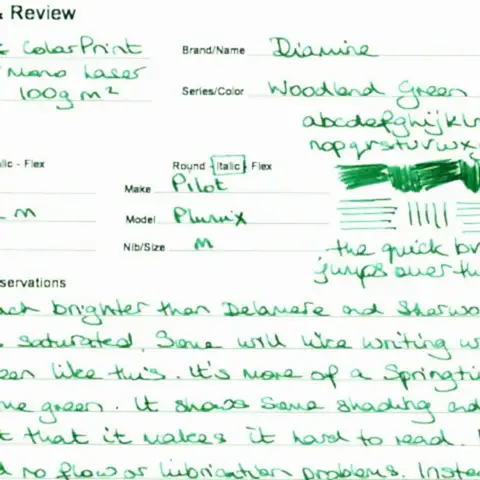 & Review
& ColorPrint
Brand/Name Diamine
Nano Laser
100g m²
Series/Color Woodland Green
abcdefghijkl
nopqrstuvwx
lic - Flex
Round - Italic - Flex
Make Pilot
m
Model Plumix
Nib/Size m
the quick br
jumps over th
servations
brighter than Delamere and Sherwo
saturated. Some will like writing w
een like this. It's more of a Springti
me green. It shows some shading and
t that it makes it hard to read.
d no flow or lubrication problems. Inste